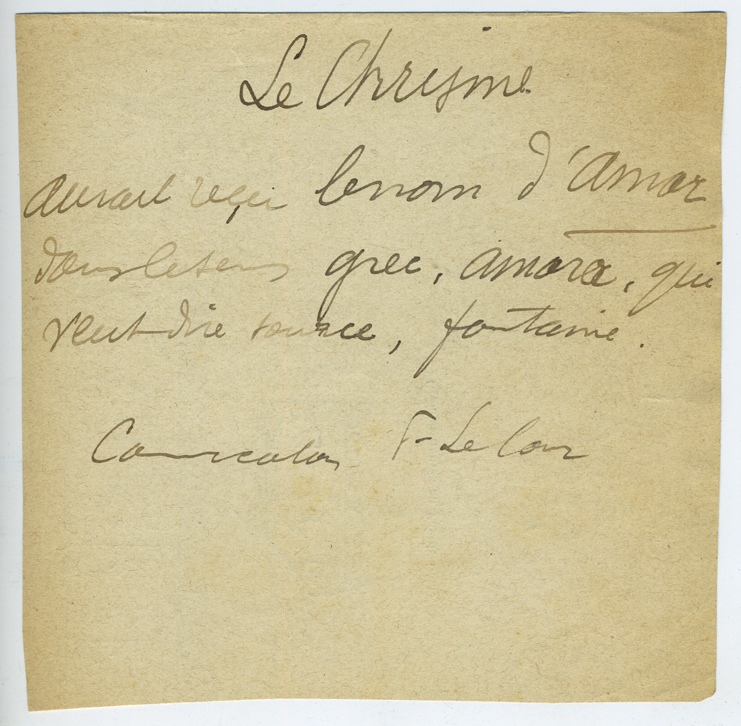 Le Chrisme
aurait reçu le nom d'Amor
dans le sens grec, amora, qui
veut dire source, fontaine.
F. Le Cour